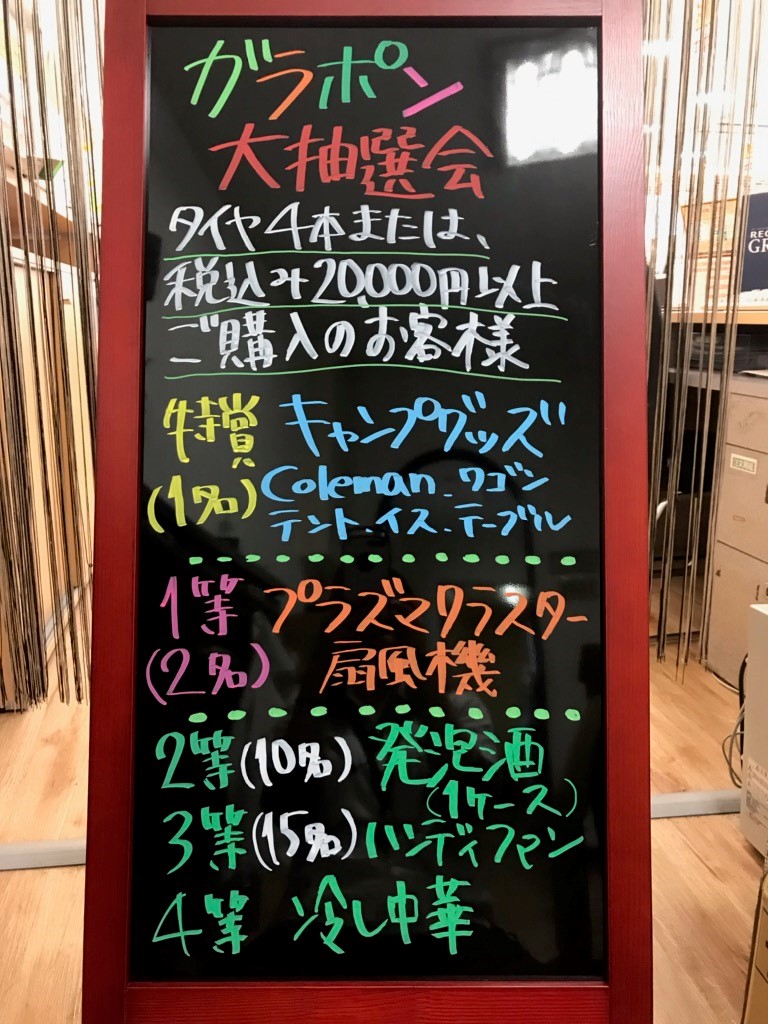 ガラポン
大抽選会
タイヤ4本または、
税込み20,000円以上
ご購入のお客様
特賞 キャンプグッズ
(1名) Coleman.ワゴン
テント.イス.テーブル
1等 プラズマクラスター
(2名) 扇風機
2等(10名) 発泡酒
(1ケース)
3等(15名) ハンディファン
4等 冷し中華